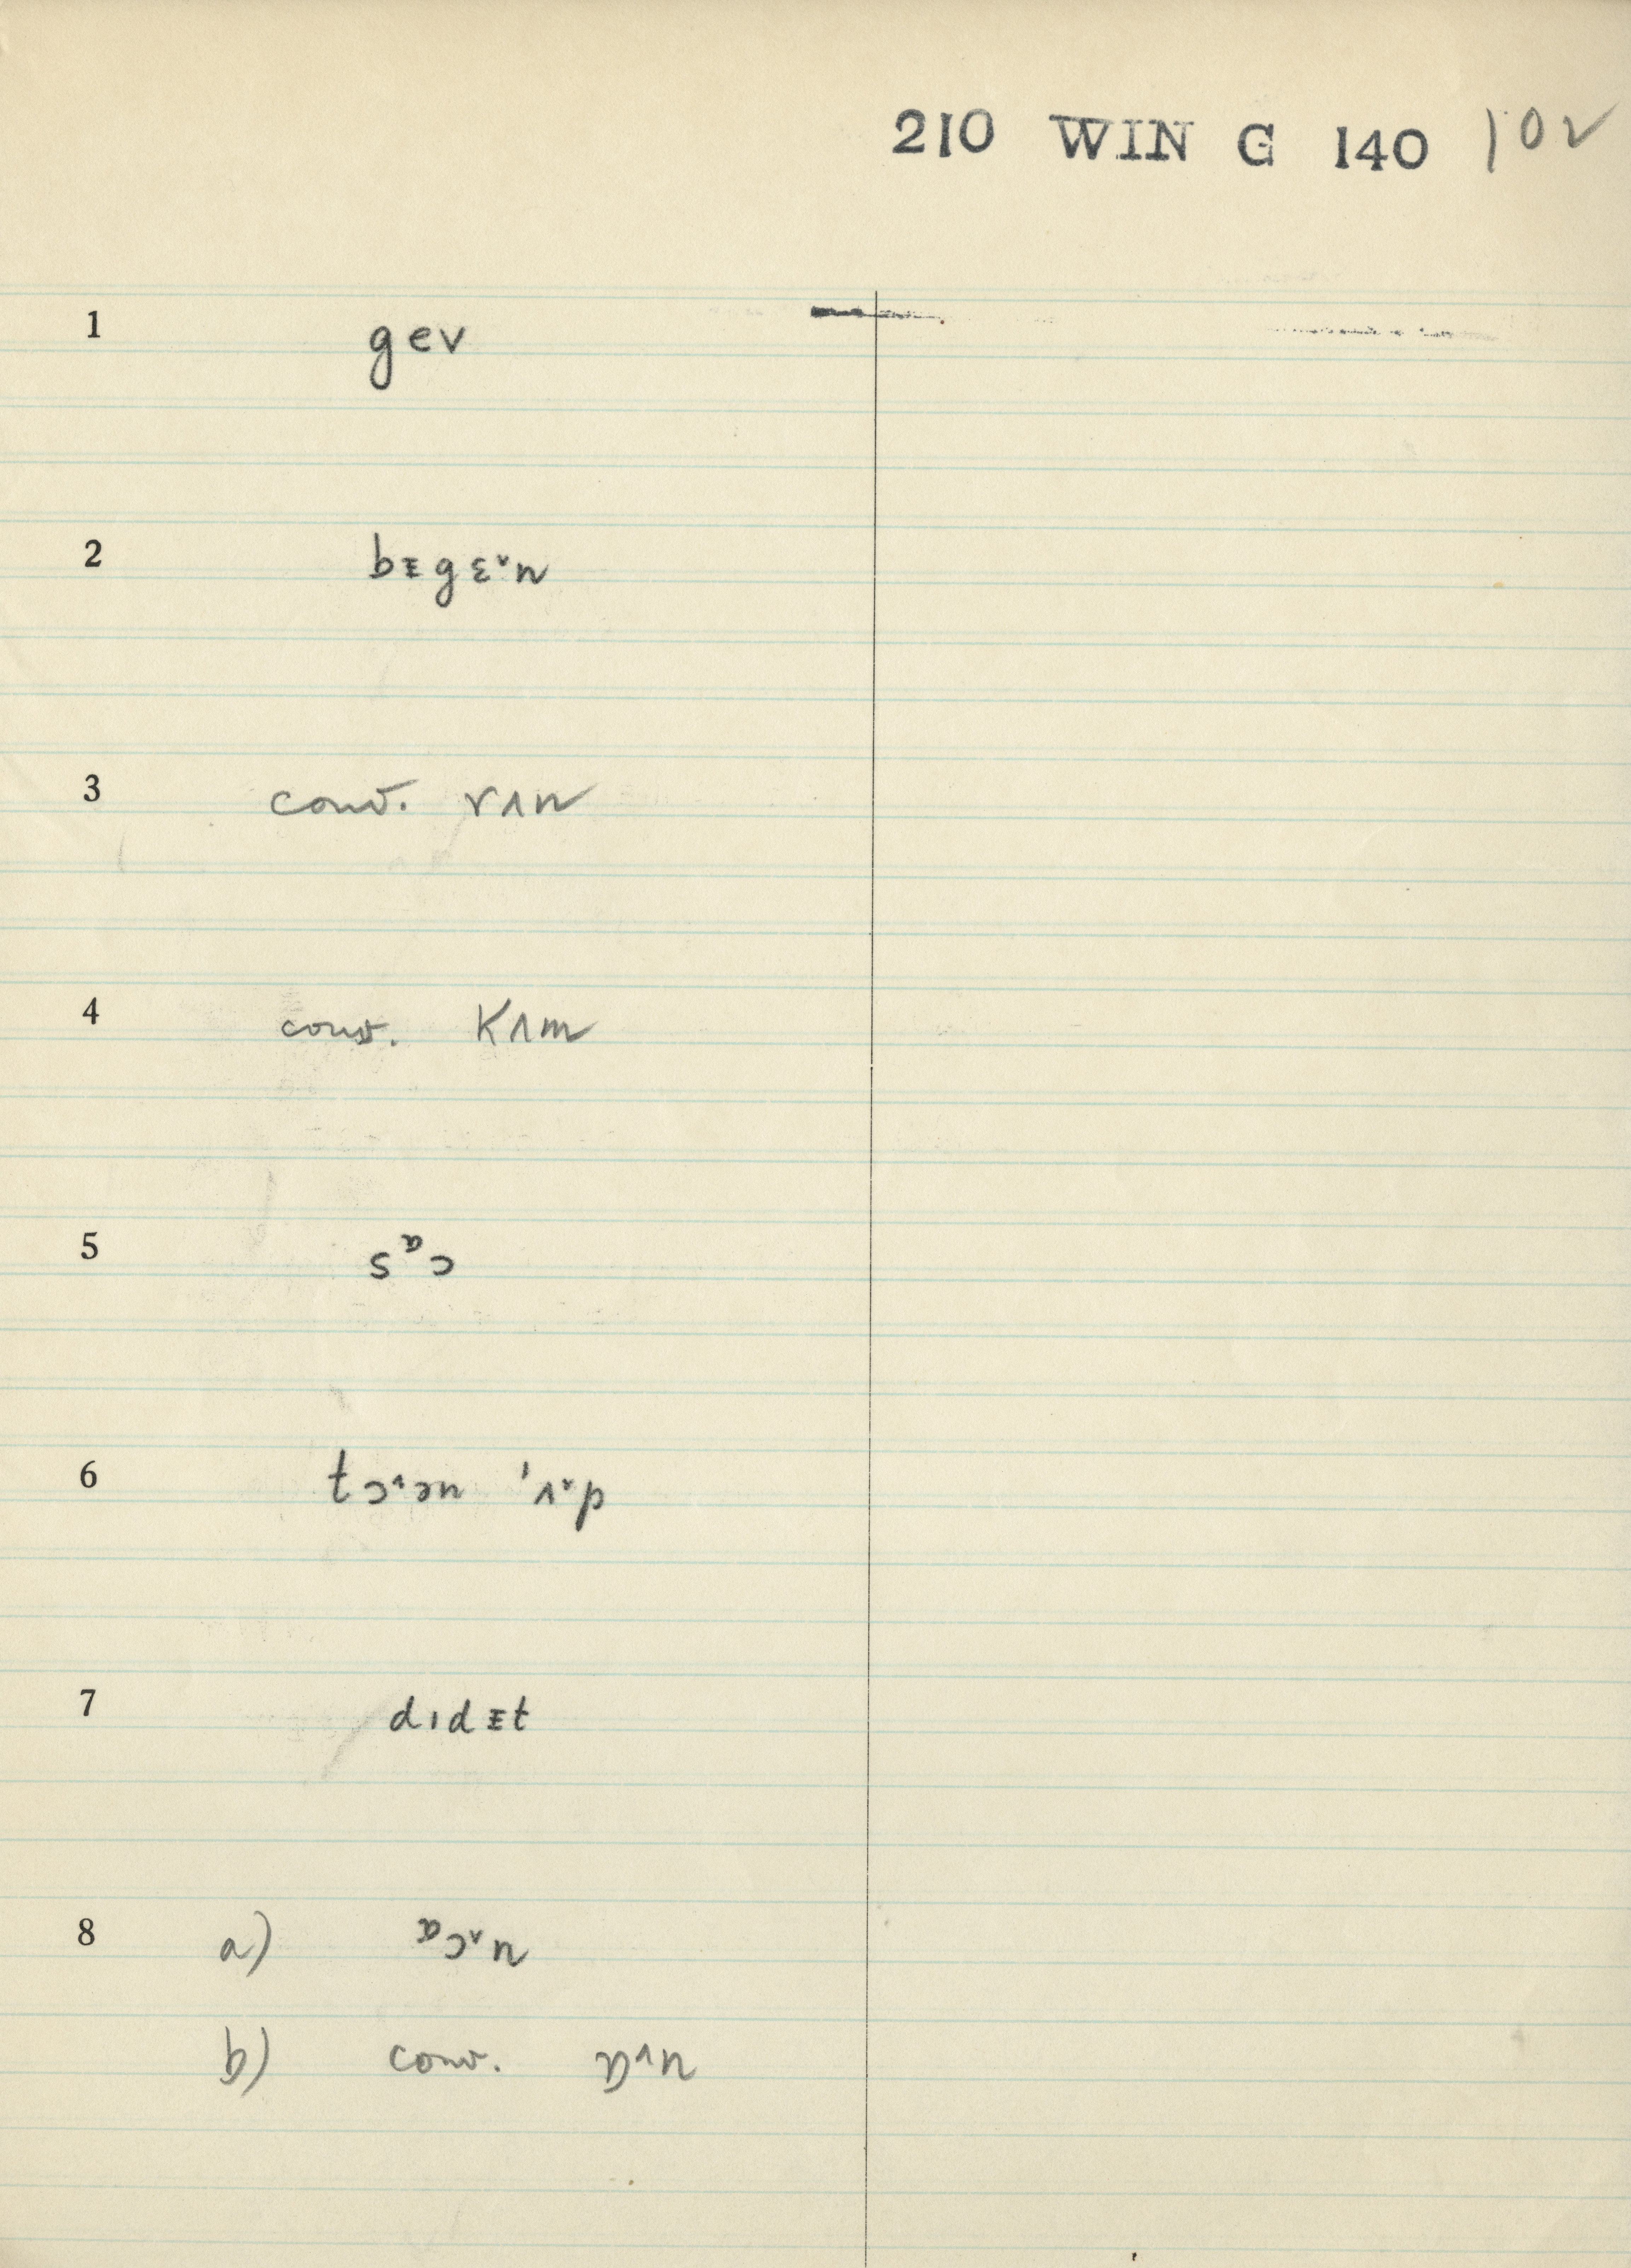 210 WIN G 140 102
1 gev
2 bᵻgɛ˅n
3 conv. rʌn
4 conv. kʌm
5 sᶛɔ
6 tɔ˄ɔn ˈʌ˅p
7 dɪdᵻt
8 a) ᶛɔ˅n
b) conv. ɒ˄n